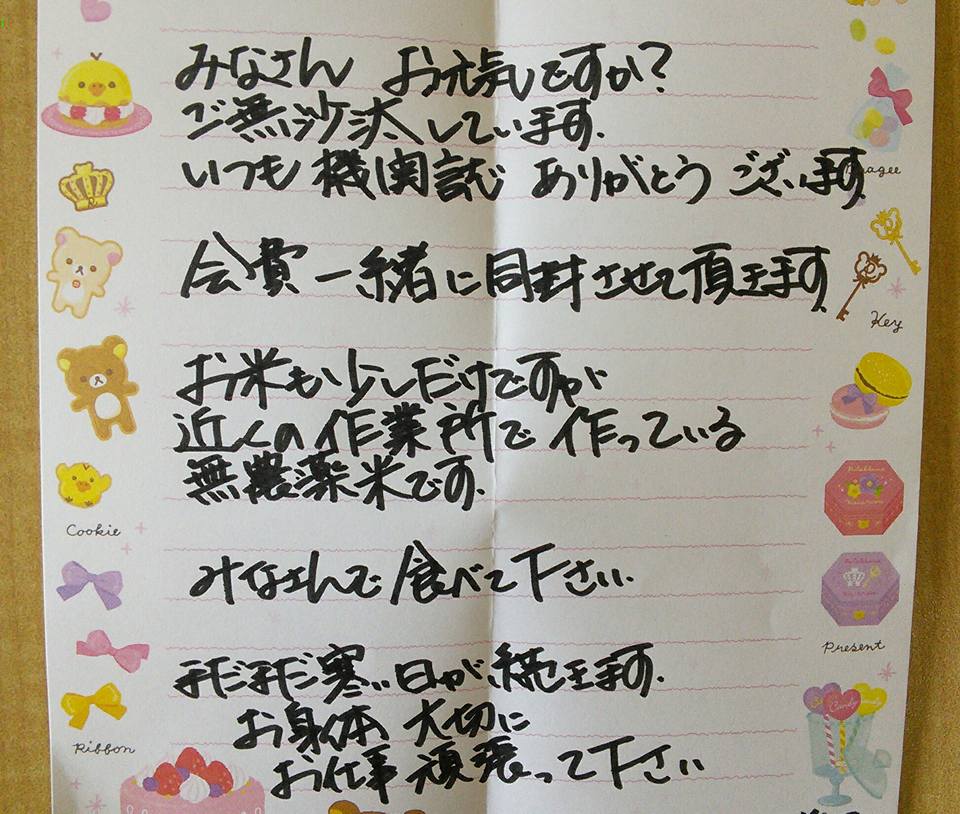 みなさん お元気ですか?
ご無沙汰しています.
いつも機関誌 ありがとうございます
会費一緒に同封させて頂きます
お米も少しだけですが
近くの作業所で作っている
無農薬米です.
みなさんで食べて下さい.
まだまだ寒い日が続きます.
お身体 大切に
お仕事 頑張って下さい
Cookie
Ribbon
Key
Present
Candy